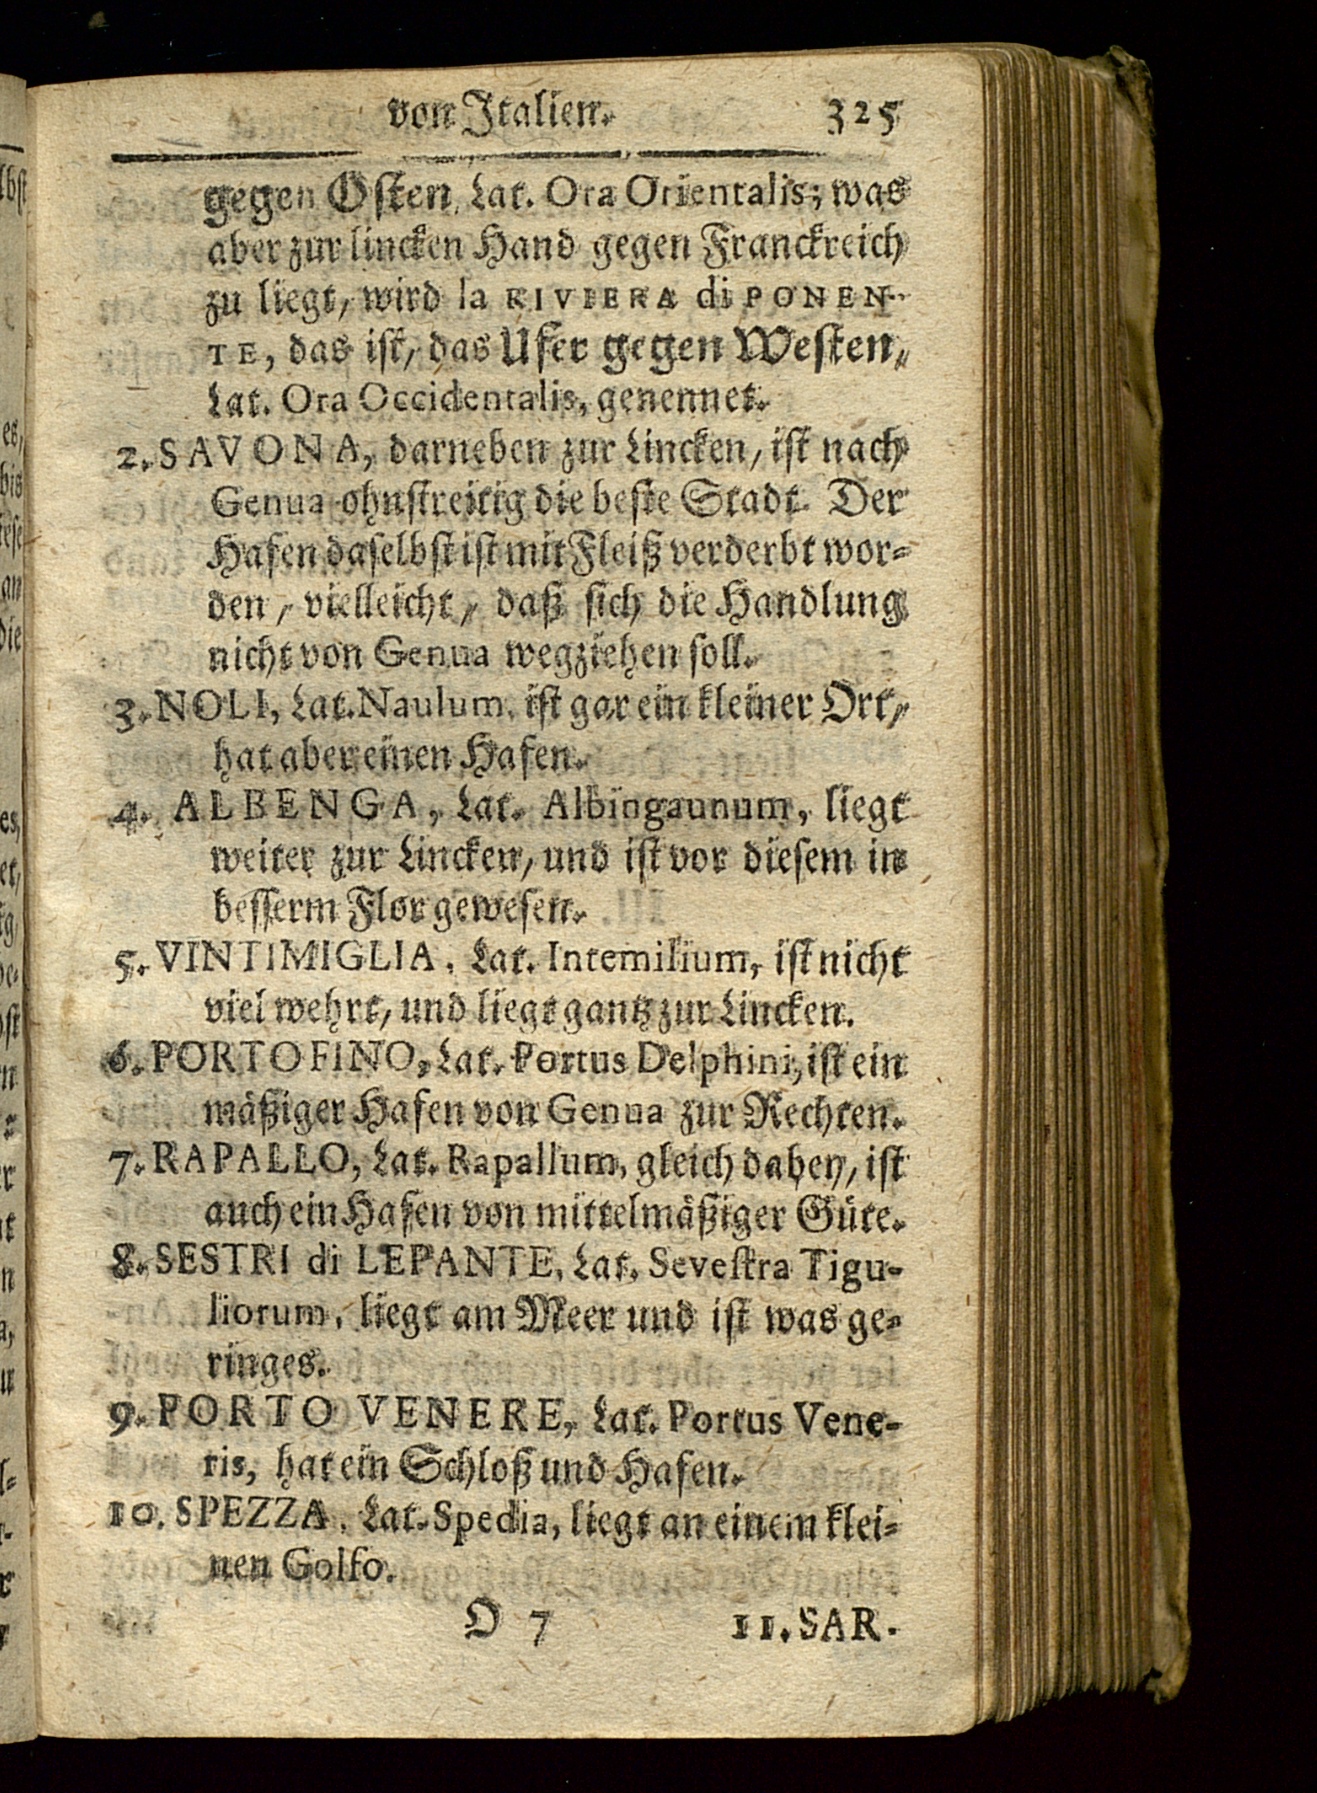 von Italien. 325
gegen Osten, Lat. Ora Orientalis; was
aber zur lincken Hand gegen Franckreich
zu liegt, wird la RIVIERA di PONEN-
TE, das ist, das Ufer gegen Westen,
Lat. Ora Occidentalis, genennet.
2. SAVONA, darneben zur Lincken, ist nach
Genua ohnstreitig die beste Stadt. Der
Hafen daselbst ist mit Fleiß verderbt wor-
den, vielleicht, daß sich die Handlung
nicht von Genua wegziehen soll.
3. NOLI, Lat. Naulum, ist gar ein kleiner Ort,
hat aber einen Hafen.
4. ALBENGA, Lat. Albingaunum, liegt
weiter zur Lincken, und ist vor diesem in
besserm Flor gewesen.
5. VINTIMIGLIA, Lat. Intemilium, ist nicht
viel wehrt, und liegt gantz zur Lincken.
6. PORTOFINO, Lat. Portus Delphini, ist ein
mäßiger Hafen von Genua zur Rechten.
7. RAPALLO, Lat. Rapallum, gleich dabey, ist
auch ein Hafen von mittelmäßiger Güte.
8. SESTRI di LEPANTE, Lat. Sevestra Tigu-
liorum, liegt am Meer und ist was ge-
ringes.
9. PORTO VENERE, Lat. Portus Vene-
ris, hat ein Schloß und Hafen.
10. SPEZZA, Lat. Spedia, liegt an einem klei-
nen Golfo.
O 7 11. SAR-